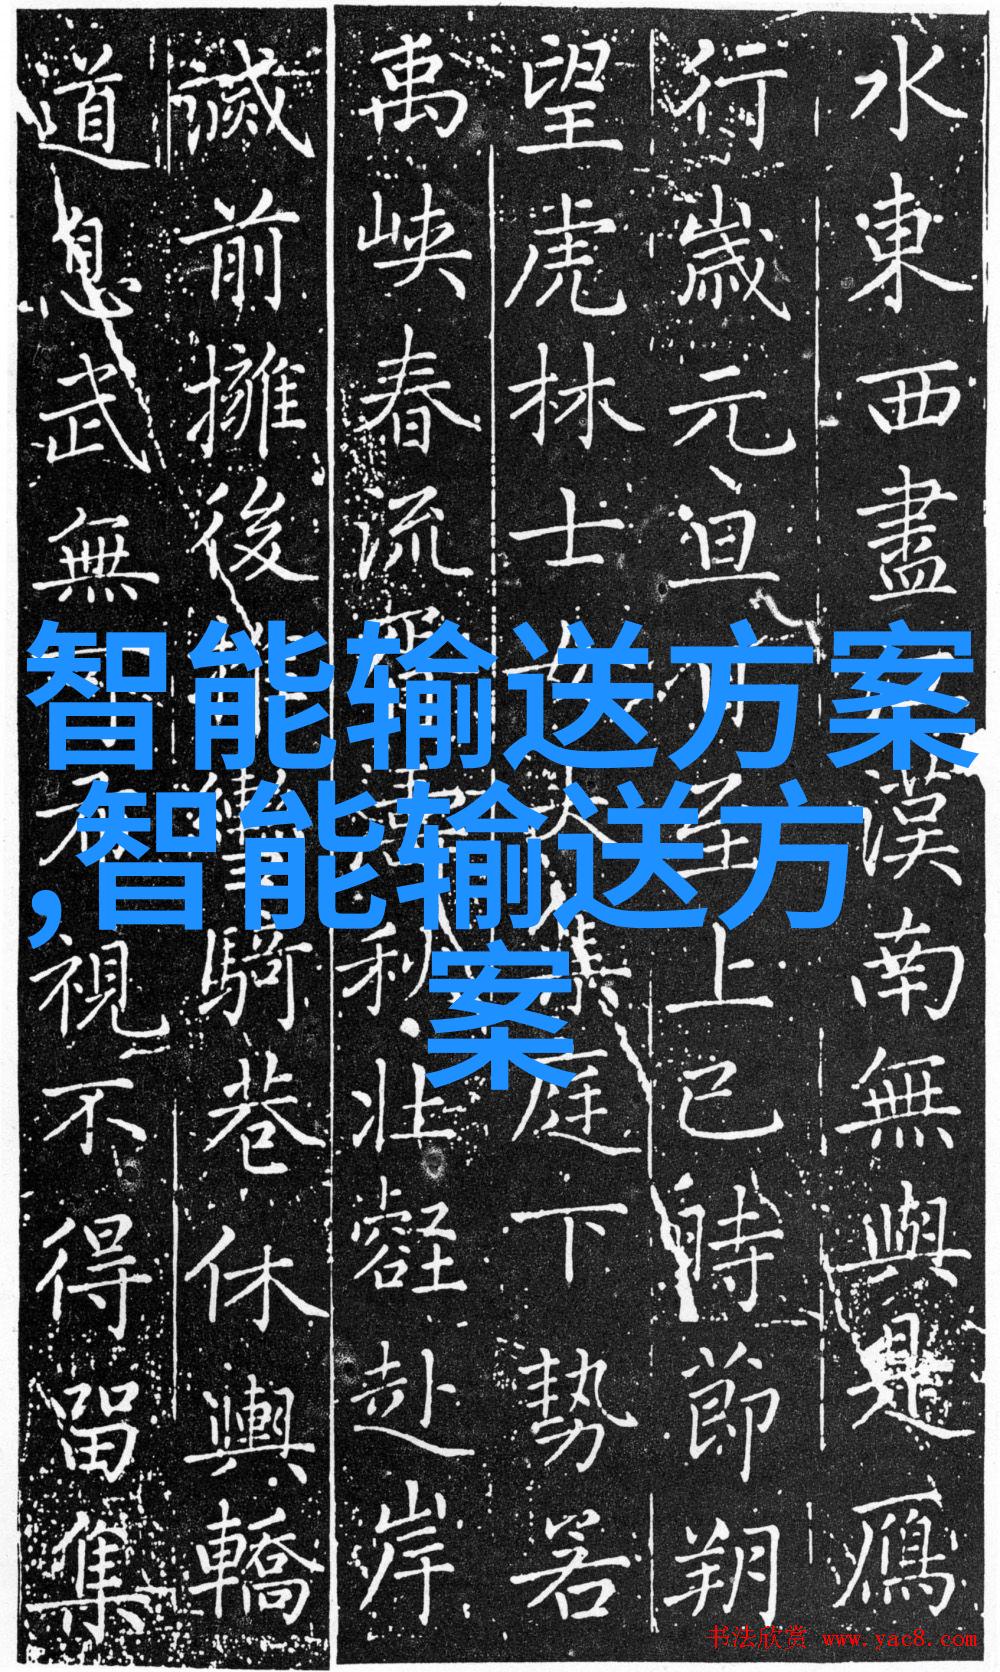 智能输送方案
,智能输送方
案
水東西盡漢南無與是鴈
行歲元旦至上巳時節朔
望虎林士大集庭下勢若
禹峽春流秋壯壑赴岸
前擁後騎巷休輿轎
道息武無視不得留集
书法欣赏 www.yac8.com